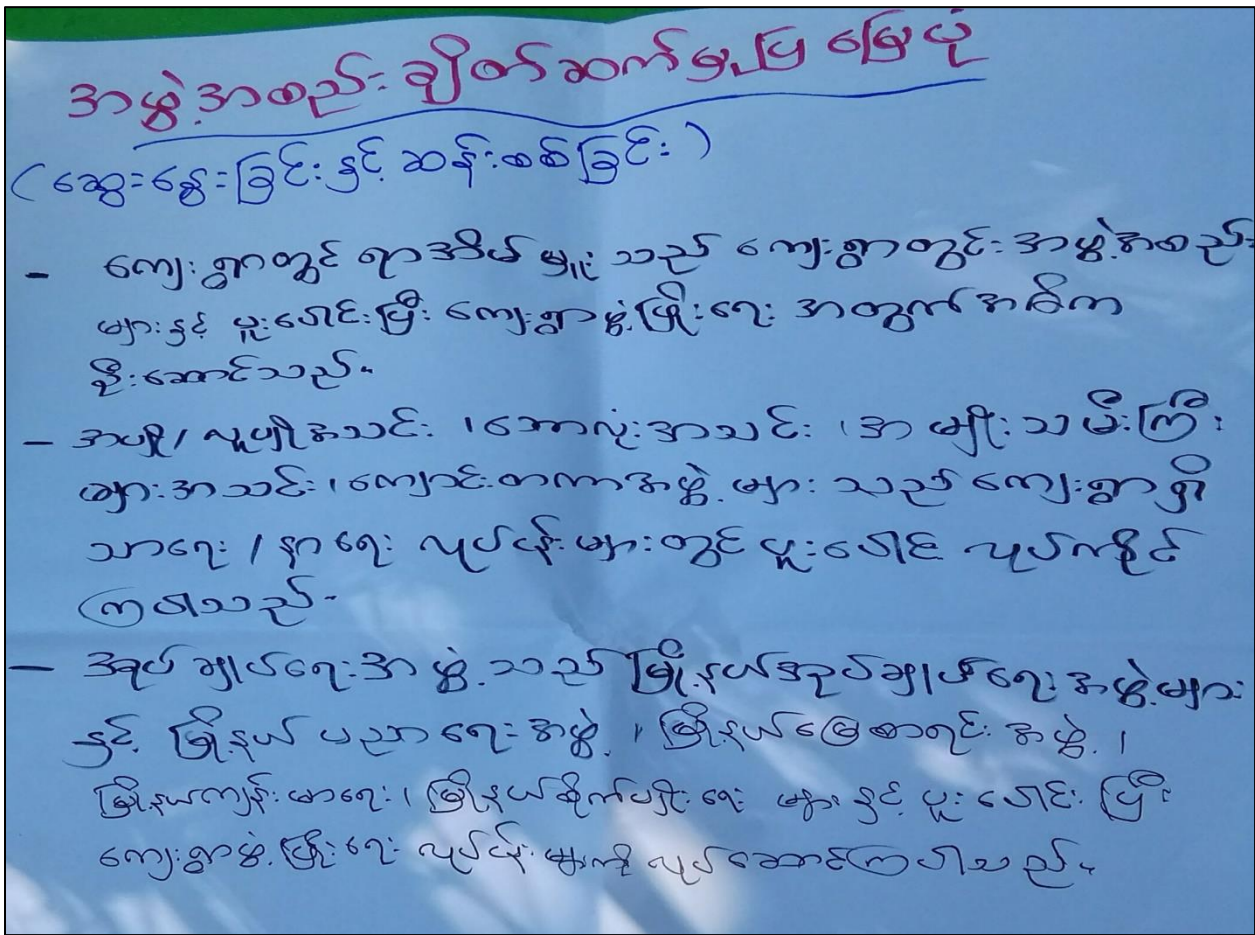 အဖွဲ့အစည်း ချိတ်ဆက်မှုပြ မြေပုံ
(ဆွေးနွေးခြင်းနှင့် ဆန်းစစ်ခြင်း)
- ကျေးရွာတွင် ရာအိမ်မှူး သည် ကျေးရွာတွင်း အဖွဲ့အစည်း
များနှင့် ပူးပေါင်းပြီး ကျေးရွာဖွံ့ဖြိုးရေး အတွက် အဓိက
ဦးဆောင်သည်။
- အပျို/လူပျိုအသင်း ၊ဘောလုံးအသင်း ၊အမျိုးသမီးကြီး
များအသင်း၊ ကျောင်းတကာအဖွဲ့ များ သည် ကျေးရွာရှိ
သာရေး / နာရေး လုပ်ငန်းများတွင် ပူးပေါင်း လုပ်ကိုင်
ကြပါသည်။
- အုပ်ချုပ်ရေးအဖွဲ့ သည် မြို့နယ်အုပ်ချုပ်ရေး အဖွဲ့များ
နှင့် မြို့နယ် ပညာရေးအဖွဲ့ ၊ မြို့နယ်မြေစာရင်း အဖွဲ့ ၊
မြို့နယ်ကျန်းမာရေး၊ မြို့နယ်စိုက်ပျိုးရေး များနှင့် ပူးပေါင်းပြီး
ကျေးရွာဖွံ့ဖြိုးရေး လုပ်ငန်းများကို လုပ်ဆောင်ကြပါသည်။